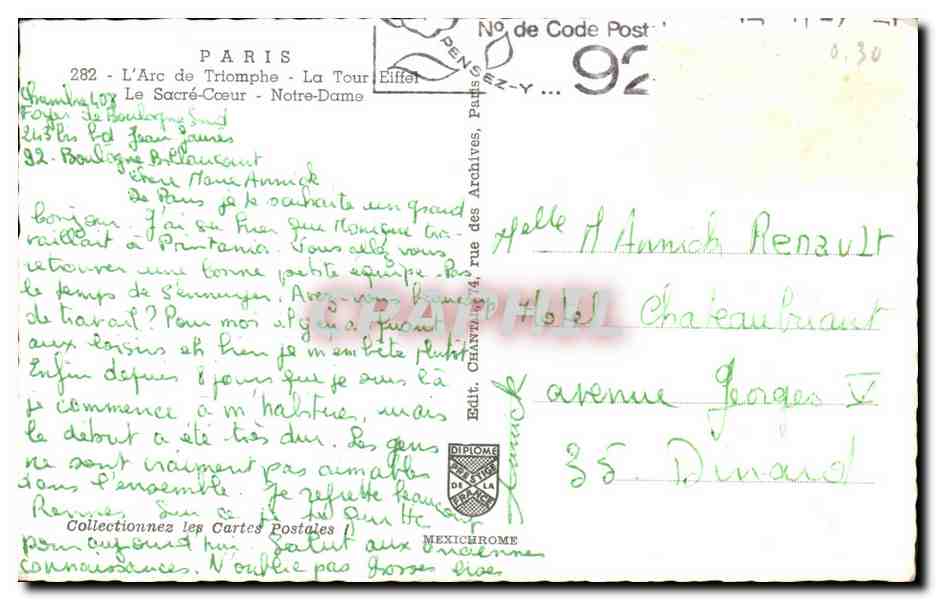 PARIS
282 - L'Arc de Triomphe - La Tour Eiffel
Le Sacré-Cœur - Notre-Dame
N° de Code Post
PENSEZ-Y...
92
0.30
Chambre 408
Foyer de Boulogne Sud
243 bis bd Jean Jaurès
92 - Boulogne Billancourt
Chère Marie Annick
De Paris je te souhaite un grand
bonjour. J'ai su hier que Monique tra-
vaillait à Printania. Vous allez vous
retrouver une bonne petite équipe. Pas
le temps de s'ennuyer. Avez-vous beaucoup
de travail? Pour moi il y en a. Quant
aux loisirs eh bien je m'embête plutôt
Enfin depuis 8 jours que je suis là
je commence à m'habituer, mais
le début a été très dur. Les gens
ne sont vraiment pas aimables
dans l'ensemble. Je regrette beaucoup
Rennes. Sur ce je te quitte
pour aujourd'hui. Salut aux anciennes
connaissances. N'oublie pas Grosses bises
Melle M Annick Renault
Hotel Chateaubriant
avenue Georges V
35 Dinard
Edit. CHANTAL, 74, rue des Archives, Paris
DIPLOME
PRESTIGE
DE LA
FRANCE
MEXICHROME
Collectionnez les Cartes Postales !
CPAPHIL